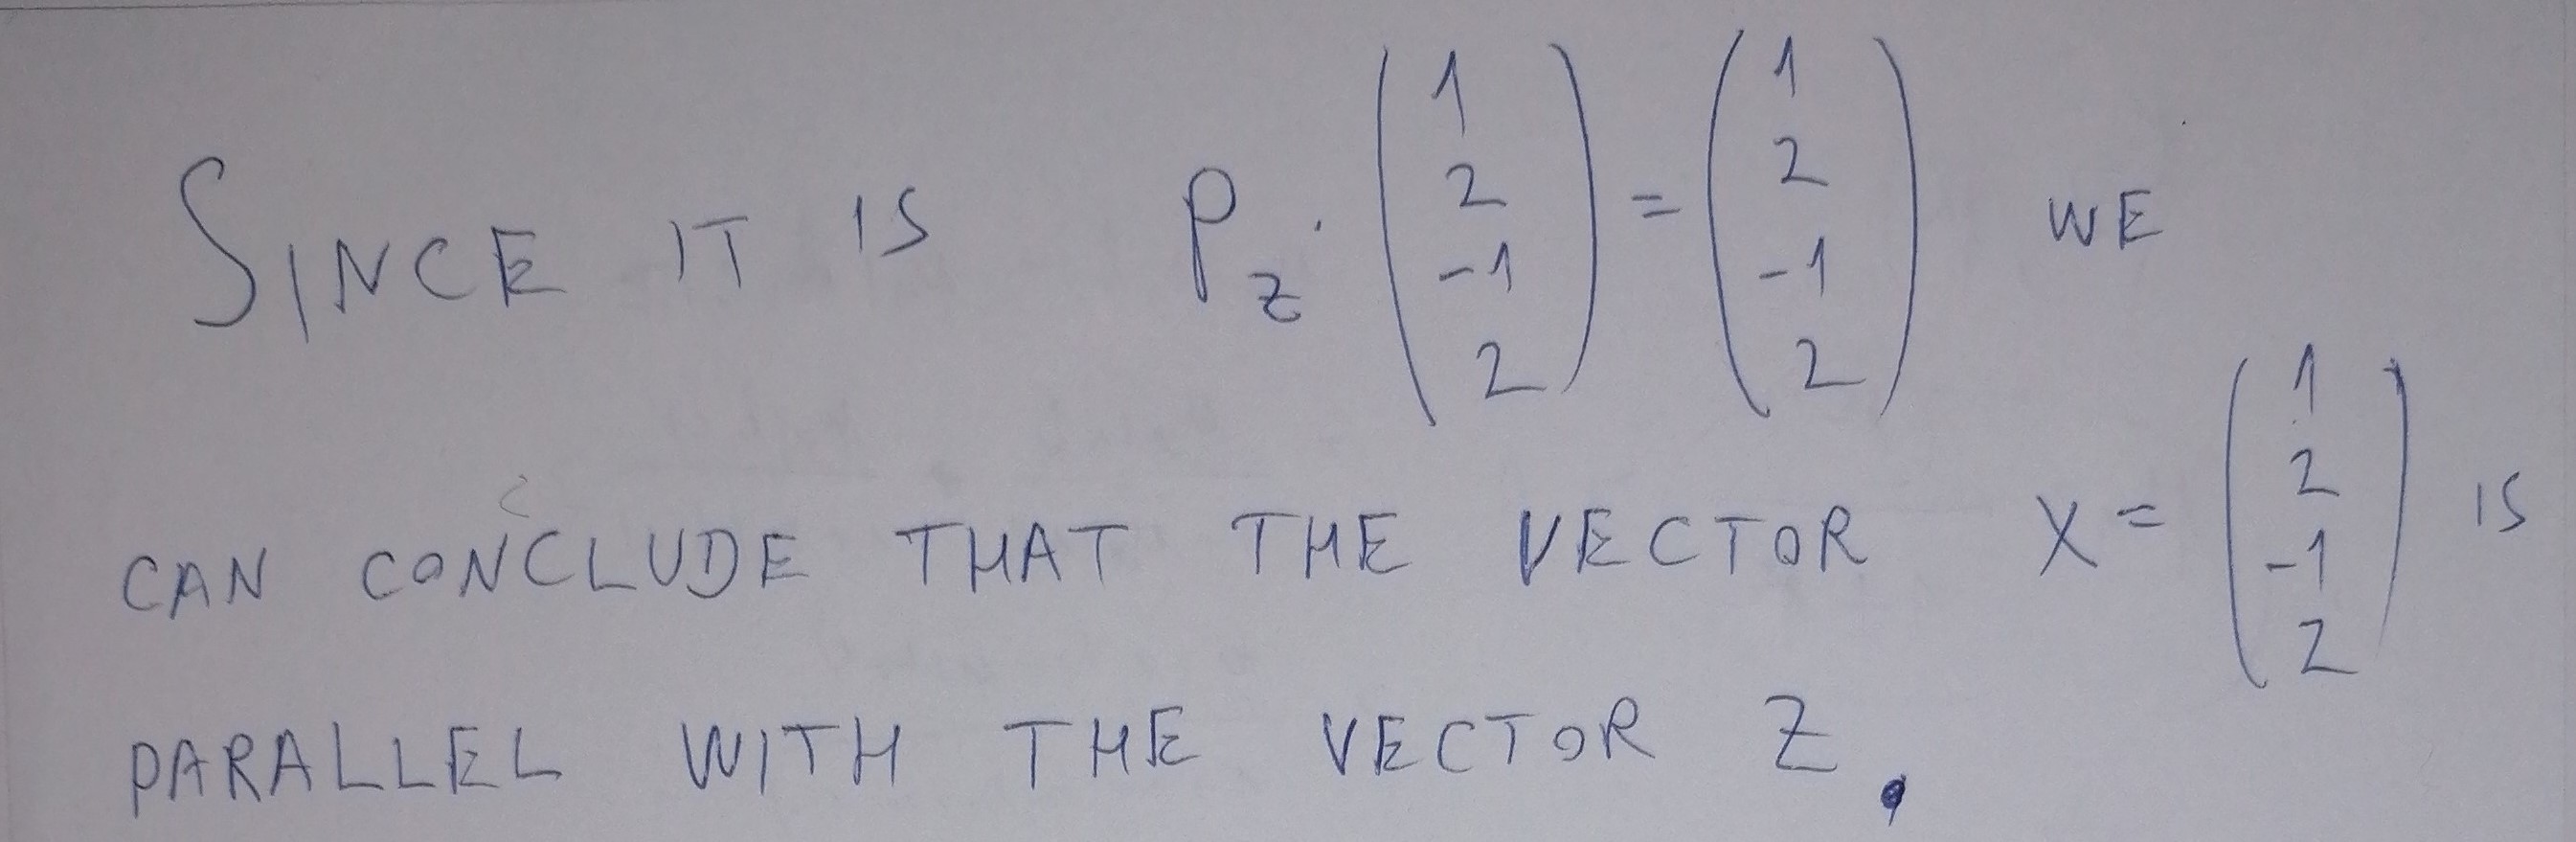 SINCE IT IS P_z · (1 2 -1 2) = (1 2 -1 2) WE
CAN CONCLUDE THAT THE VECTOR X = (1 2 -1 2) IS
PARALLEL WITH THE VECTOR Z.